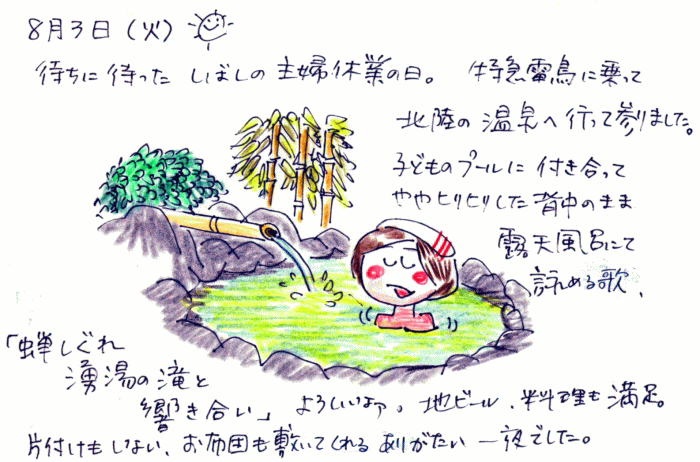 8月3日（火）
待ちに待った しばしの主婦休業の日。 特急雷鳥に乗って
北陸の温泉へ行って参りました。
子どものプールに付き合って
ややヒリヒリした背中のまま
露天風呂にて
詠める歌、
「蝉しぐれ
湧湯の滝と
響き合い」 よろしいなァ。 地ビール、料理も満足。
片付けもしない、お布団も敷いてくれる ありがたい一夜でした。